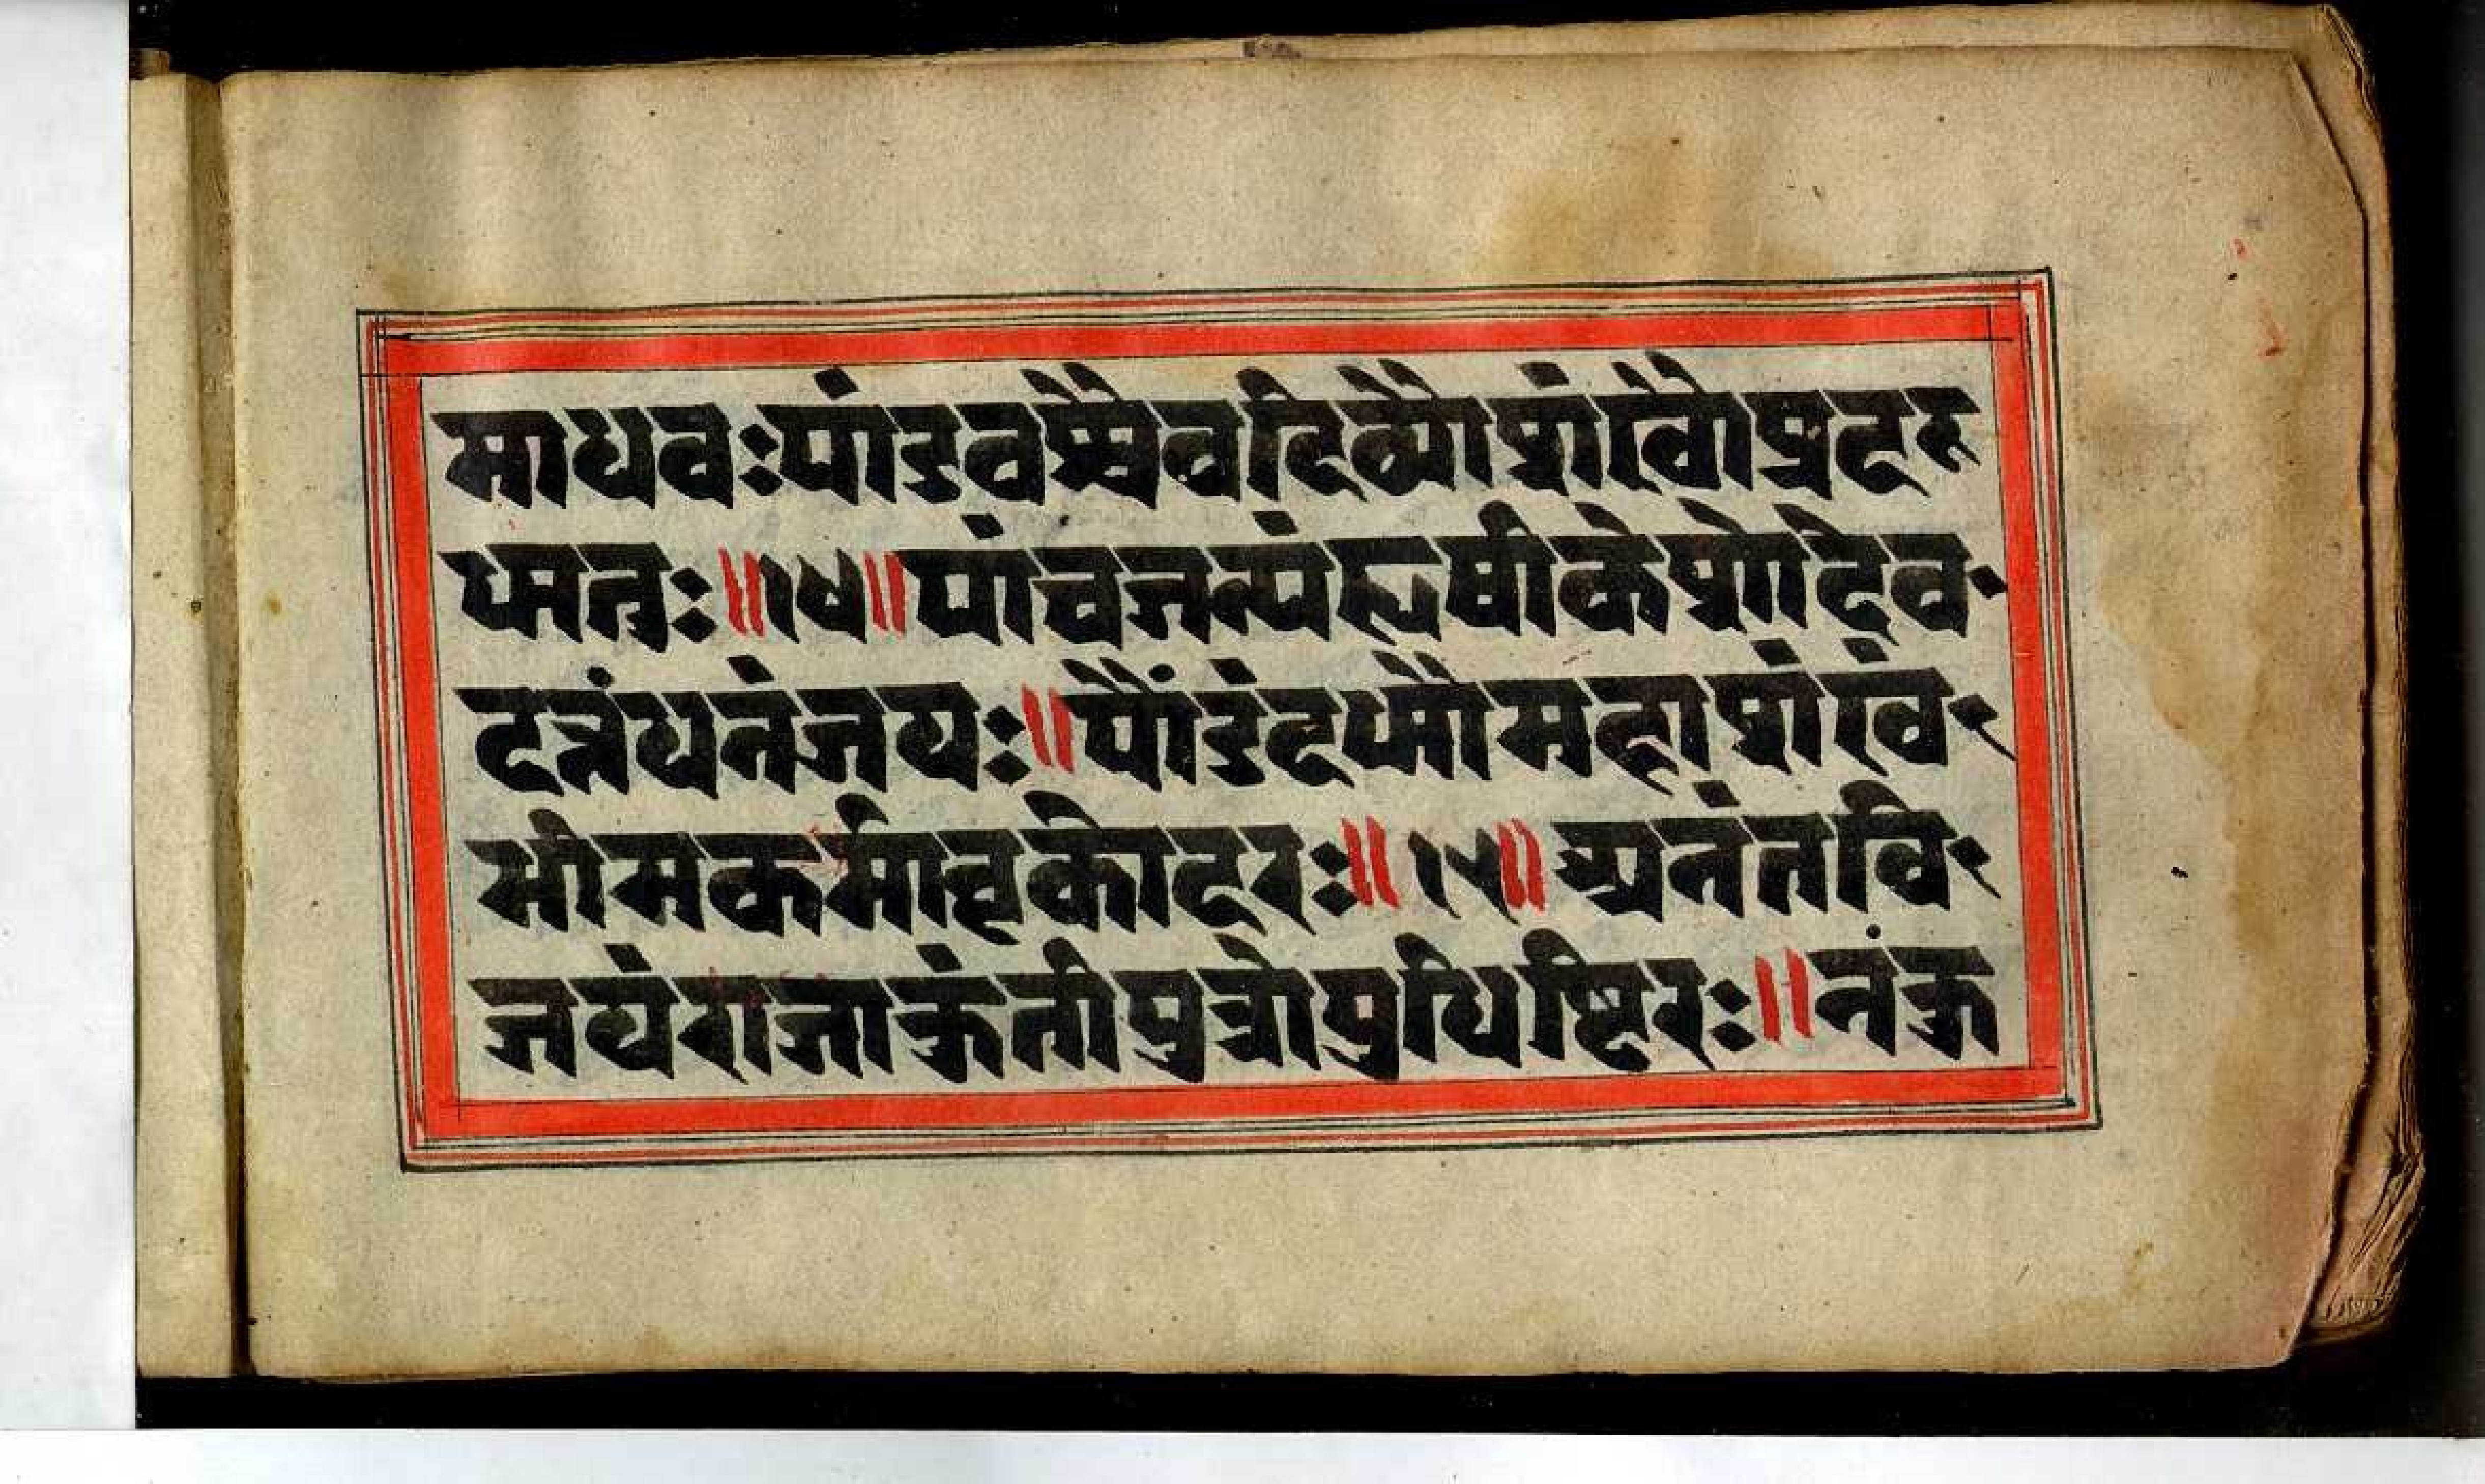 माधवःपांडवश्चैवदिव्यौशंखौप्रदध्
मतुः॥१४॥पांचजन्यंहृषीकेशोदेव
दत्तंधनंजयः॥पौंड्रंदध्मौमहाशंखं
भीमकर्मावृकोदरः॥१५॥अनंतवि
जयंराजाकुंतीपुत्रोयुधिष्ठिरः॥नकु